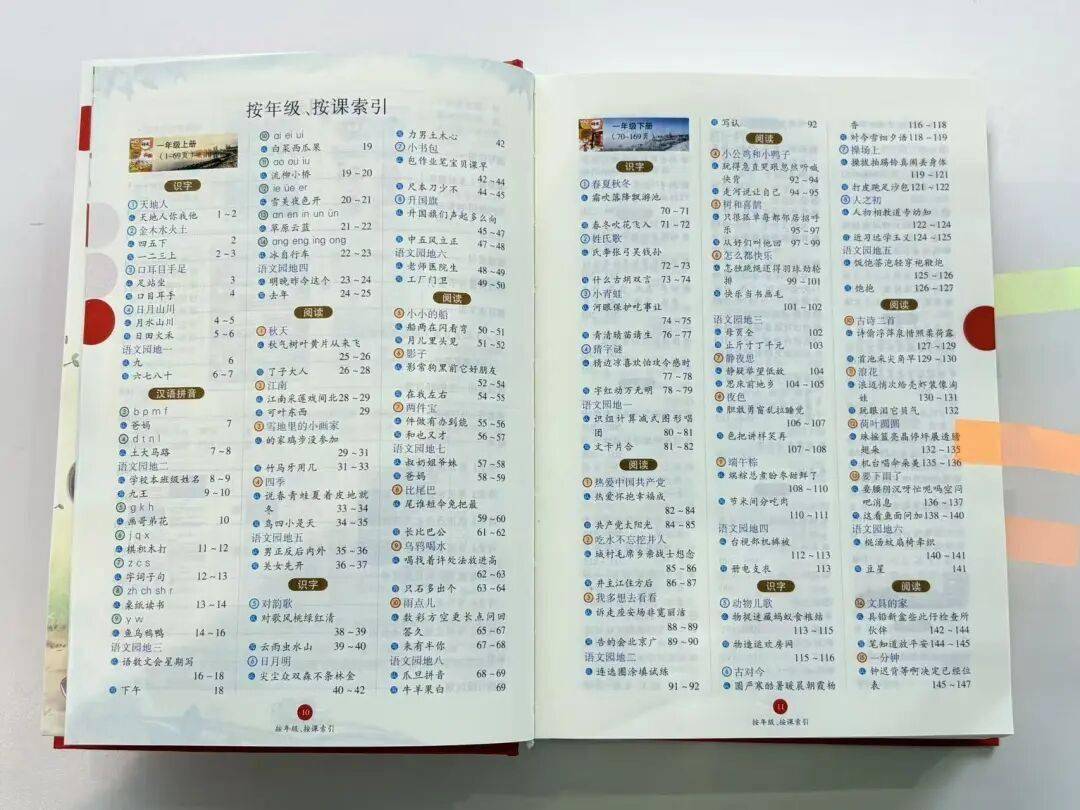 按年级、按课索引
一年级上册
(1~69页)
识字
①天地人
天地人你我他 1~2
②金木水火土
四五下 2
一二三上 2~3
③口耳目手足
足站坐 3
口目耳手 4
④日月山川
月水山川 4~5
日田火禾 5~6
语文园地一
九 6
六七八十 6~7
汉语拼音
③b p m f
爸妈 7
④d t n l
土大马路 7~8
语文园地二
学校本班级姓名 8~9
九王 9~10
⑤g k h
画哥弟花 10
⑥j q x
棋积木打 11~12
⑦z c s
字词子句 12~13
⑧zh ch sh r
桌纸读书 13~14
⑨y w
鱼乌鸦鸭 14~16
语文园地三
语数文会星期写
下午 18
⑩ai ei ui
白菜西瓜果 19
⑪ao ou iu
流柳小桥 19~20
⑫ie üe er
雪美夜色开 20~21
⑬an en in un ün
草原云蓝 21~22
⑭ang eng ing ong
冰自行车 22~23
语文园地四
明晚昨今这个 23~24
去年 24~25
阅读
①秋天
秋气树叶黄片从来飞
25~26
了子大人 26~28
②江南
江南采莲戏间北28~29
可叶东西 29
③雪地里的小画家
的家鸡步没参加
29~31
竹马牙用几 31~33
④四季
说春青蛙夏着皮地就
冬 33~34
鸟四小是天 34~35
语文园地五
男正反后内外 35~36
关女先开 36~37
识字
⑤对韵歌
对歌风桃绿红清
38~39
云雨虫水山 39~40
⑥日月明
尖尘众双森不条林金
40~42
力男土木心
42
⑦小书包
包作业笔宝贝课早
42~44
尺本刀少不 44~45
⑧升国旗
升国旗们声起多么向
45~47
中五风立正 47~48
语文园地六
老师医院生 48~49
工厂门卫 49~50
阅读
⑤小小的船
船两在闪看弯 50~51
月儿里头见 51~52
⑥影子
影常狗黑前它好朋友
52~54
在我左右 54~55
⑦两件宝
件做有办到能 55~56
和也又才 56~57
语文园地七
叔奶姐爷妹 57~58
爸妈 58~59
⑧比尾巴
尾谁短伞兔把最
59~60
长比巴公 61~62
⑨乌鸦喝水
喝找着许处法放进高
62~63
只石多出个 63~64
⑩雨点儿
数彩方空更长点问回
答久 65~67
来有半你 67~68
语文园地八
瓜旦拼音 68~69
牛羊果白 69
10
按年级、按课索引
一年级下册
(70~169页)
识字
①春夏秋冬
霜吹落降飘游池
70~71
春冬吹花飞入 71~72
②姓氏歌
氏李张弓吴钱孙
72~73
什么方胡双言 73~74
③小青蛙
河眼保护吃事让
74~75
青清晴苗请生 76~77
④猜字谜
猜边凉喜欢怕欢令感时
77~78
字红动万无明 78~79
语文园地一
识组计算减式图形唱
团 80~81
文卡片合 81~82
阅读
①热爱中国共产党
热爱怀抱幸福成
82~84
共产党太阳光 84~85
②吃水不忘挖井人
城村毛席乡亲战士想念
85~86
井主江住方后 86~87
③我多想去看看
诉走座安场非宽丽活
88~89
告的会北京广 89~90
语文园地二
连选圈涂填试练
91~92
写认 92
阅读
④小公鸡和小鸭子
玩得急直哭跟忽然听喊
快背 92~94
走河说让自己 94~95
⑤树和喜鹊
只很孤单每都邻居招呼
乐 95~97
从好们叫他回 97~99
⑥怎么都快乐
怎独跳绳还得羽球劲轮
排 99~101
快乐当书画毛
101~102
语文园地三
母页全 102
止斤寸丁千元 103
⑦静夜思
静疑举望低故 104
思床前地乡 104~105
⑧夜色
胆敢勇窗乱拉睡觉
106~107
色把讲样笑再
107~108
⑨端午粽
端粽总煮盼枣甜鲜了
108~110
节米间分吃肉
110~111
语文园地四
台视部机裤被
112~113
册电支衣 113
识字
⑤动物儿歌
物捉迷藏蚂蚁食粮结
113~115
物造运欢房网
115~116
⑥古对今
圆严寒酷暑暖晨朝霞杨
香 116~118
对今雪细夕语118~119
⑦操场上
操拔拍踢铃真闹表身体
119~121
打皮跑足沙包121~122
⑧人之初
人初相教道专幼知
122~124
近习远学玉义124~125
语文园地五
饭饱茶泡轻穿袍鞭炮
125~126
饱抱 126~127
阅读
⑩古诗二首
诗偷浮萍泉惜照柔荷露
127~129
首池采尖角早129~130
⑪浪花
浪迈悄次给壳虾装像淘
娃 130~131
玩眼泪它贝气 132
⑫荷叶圆圆
珠摇篮亮晶停坪展透膀
翅朵 132~135
机台唱伞朵美135~136
⑬要下雨了
要腰阴沉呀忙呢吗空闷
吧消息 136~137
这看鱼面问加138~140
语文园地六
棍汤蚊扇椅牵织
140~141
豆星 141
阅读
⑭文具的家
具铅新盒些此仔检查所
伙伴 142~144
笔知道放平安144~145
⑮一分钟
钟迟背等啊决定已经位
表 145~147
11
按年级、按课索引